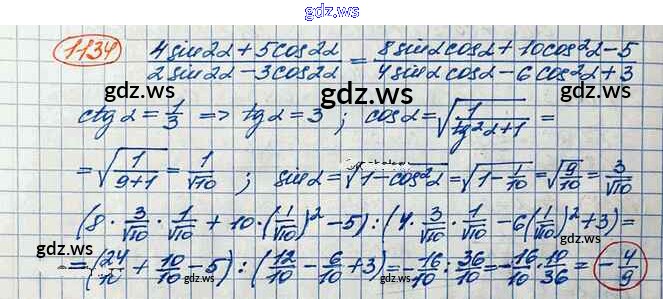 gdz.ws
gdz.ws
1134 (4sin2α + 5cos2α)/(2sin2α - 3cos2α) = (8sinαcosα + 10cos²α - 5)/(4sinαcosα - 6cos²α + 3)
gdz.ws
ctgα = 1/3 => tgα = 3 ; cosα = √(1/(tg²α+1)) =
= √(1/(9+1)) = 1/√10 ; sinα = √(1-cos²α) = √(1 - 1/10) = √(9/10) = 3/√10
(8 · 3/√10 · 1/√10 + 10 · (1/√10)² - 5) : (4 · 3/√10 · 1/√10 - 6(1/√10)² + 3) =
gdz.ws
gdz.ws
= (24/10 + 10/10 - 5) : (12/10 - 6/10 + 3) = -16/10 : 36/10 = -16/10 · 10/36 = -4/9
gdz.ws